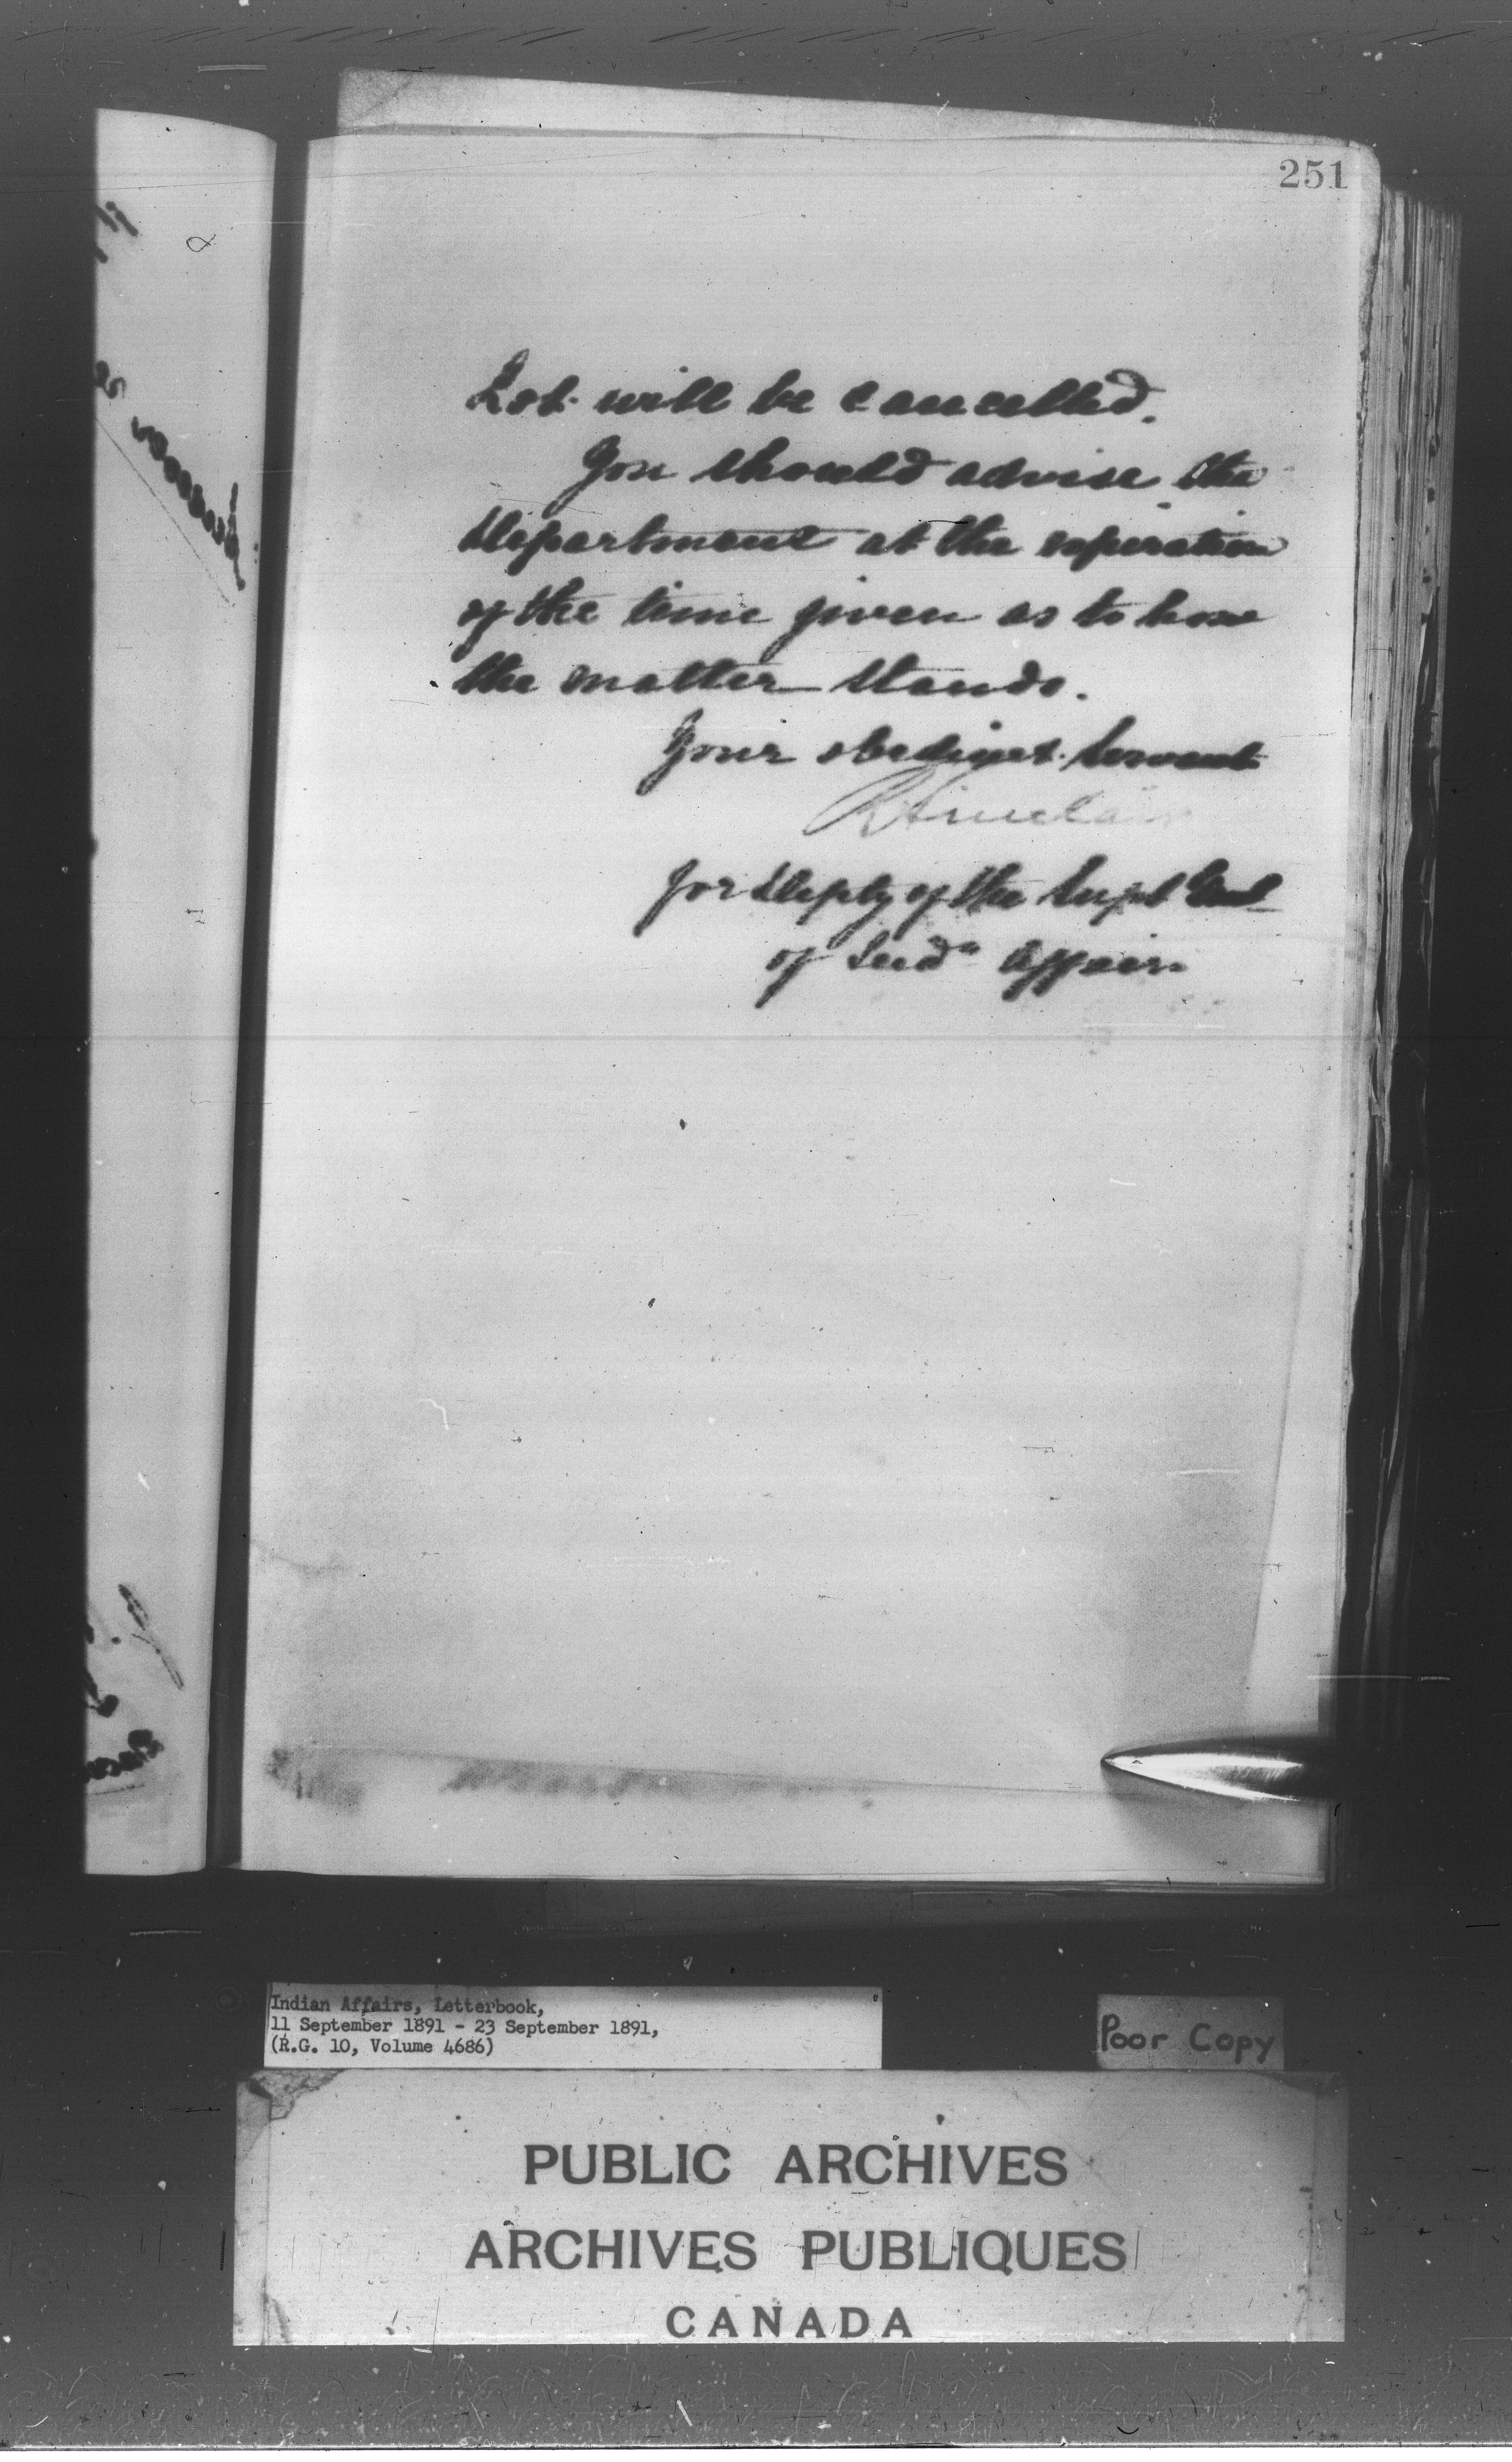 251
Lot will be cancelled.
You should advise the
Department at the expiration
of the time given as to how
the matter stands.
Your obedient servant
R Sinclair
for Depty of the Supt Genl
of Indn Affairs
Indian Affairs, Letterbook,
11 September 1891 - 23 September 1891,
(R.G. 10, Volume 4686)
Poor Copy
PUBLIC ARCHIVES
ARCHIVES PUBLIQUES
CANADA